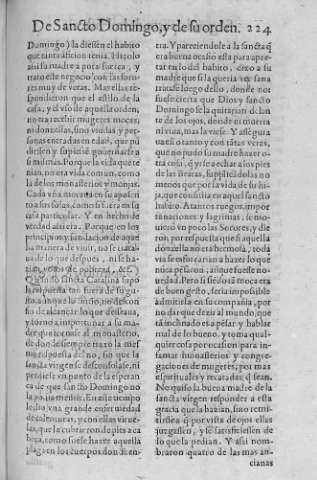 De Sancto Domingo, y de su orden. 224
Domingo) la diessen el habito
que tanta aficion tenia. Hizolo
assi su madre a pura fuerça, y
trato este negocio con las soro-
res muy de veras. Mas ellas re-
spondieron que el estilo de la
casa, y el vso de aquella orden,
no era recebir mugeres moças,
ni donzellas, sino viudas, y per-
sonas entradas en edad, que pu
diessen y supiesse gouernarse a
si mismas. Porque la vida que te
nian, no era vida comun, como
la de los monasterios y monjas.
Cada vna moraua en su aposen
to a sus solas, como si fuera en su
casa particular. Y en hecho de
verdad assi era. Porque en los
principios y fundacion de aque
lla manera de viuir, no se trata-
ua de lo que despues, ni se ha-
zian, votos de pobreza, &c.
Quando sancta Catalina supo
la respuesta no fuera de su gu-
sto, aunque la
fio de alcançar lo que desseaua,
y torno a importunar a la ma-
dre que tornasse al monasterio,
de donde siempre traxo la mes
ma respuesta del no, sin que la
sancta virgen se desconsolasse, ni
perdiesse vn punto de la esperan
ça de que sancto Domingo no
la podia mentir. En este tiempo
le dio vna grande enfermedad
de calenturas, y con ellas virue-
las, que la cubrieron de pies a ca
beça, como suele hazer aquella
plaga en los cuerpos don de en-
tra. Y pareciendole a la sancta q̃
era buena ocasio esta para apre-
tar tu lo del habito, dixo a su
madre que si la queria ver sana
tratasse luego dello, donde no
fuesse cierta que Dios y sancto
Domingo se la quitarian delan
te de los ojos, donde ni muerta
ni viua, mas la viesse. Y assegura
ua esto tanto y con tãtas veres,
que no pudo su madre hazer o-
tra cosa, q̃ yrse a echar a los pies
de las beatas, suplicãdolas no
menos que por la vida de su hi-
ja, que consistia en aquel sancto
habito. A tantos ruegos, impor
tunaciones y lagrimas, se mo-
uierõ vn poco las Sorores, y die
ron por respuesta que si aquella
donzella no era hermosa, toda
via se esforçarian a hazer lo que
nunca pensaron, aunque fuesse no-
uedad. Pero si siẽdo tã moça era
de buen gesto, seria impossible
admitirla en su compañia, por
no dar que dezir al mundo, que
tã inclinado es a pesar y hablar
mal de lo bueno, y toma qual-
quier cosa por ocasion para in-
famar monasterios y congrega-
ciones de mugeres, por mas
espirituales y recatadas q̃ sean.
No quiso la buena madre de la
sancta virgen responder a esta
gracia que la hazian, sino remi-
tirse a q̃ por vista de ojos ellas
juzgassen, y se satisfiziessen de
lo que la pedian. Y assi nom-
braron quatro de las mas an-
cianas